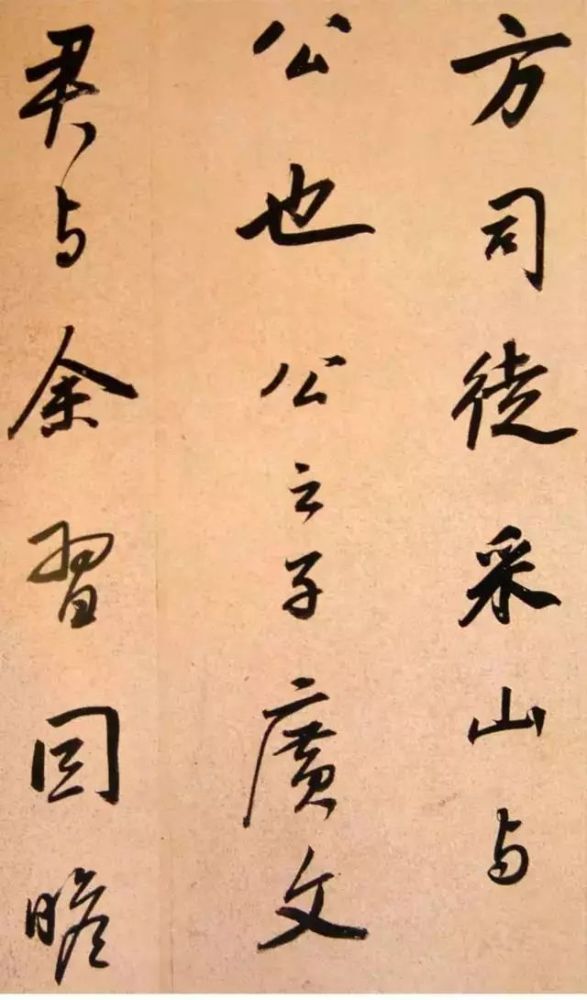 方司徒采山与
公也公之子廣文
君与余習囙瞻